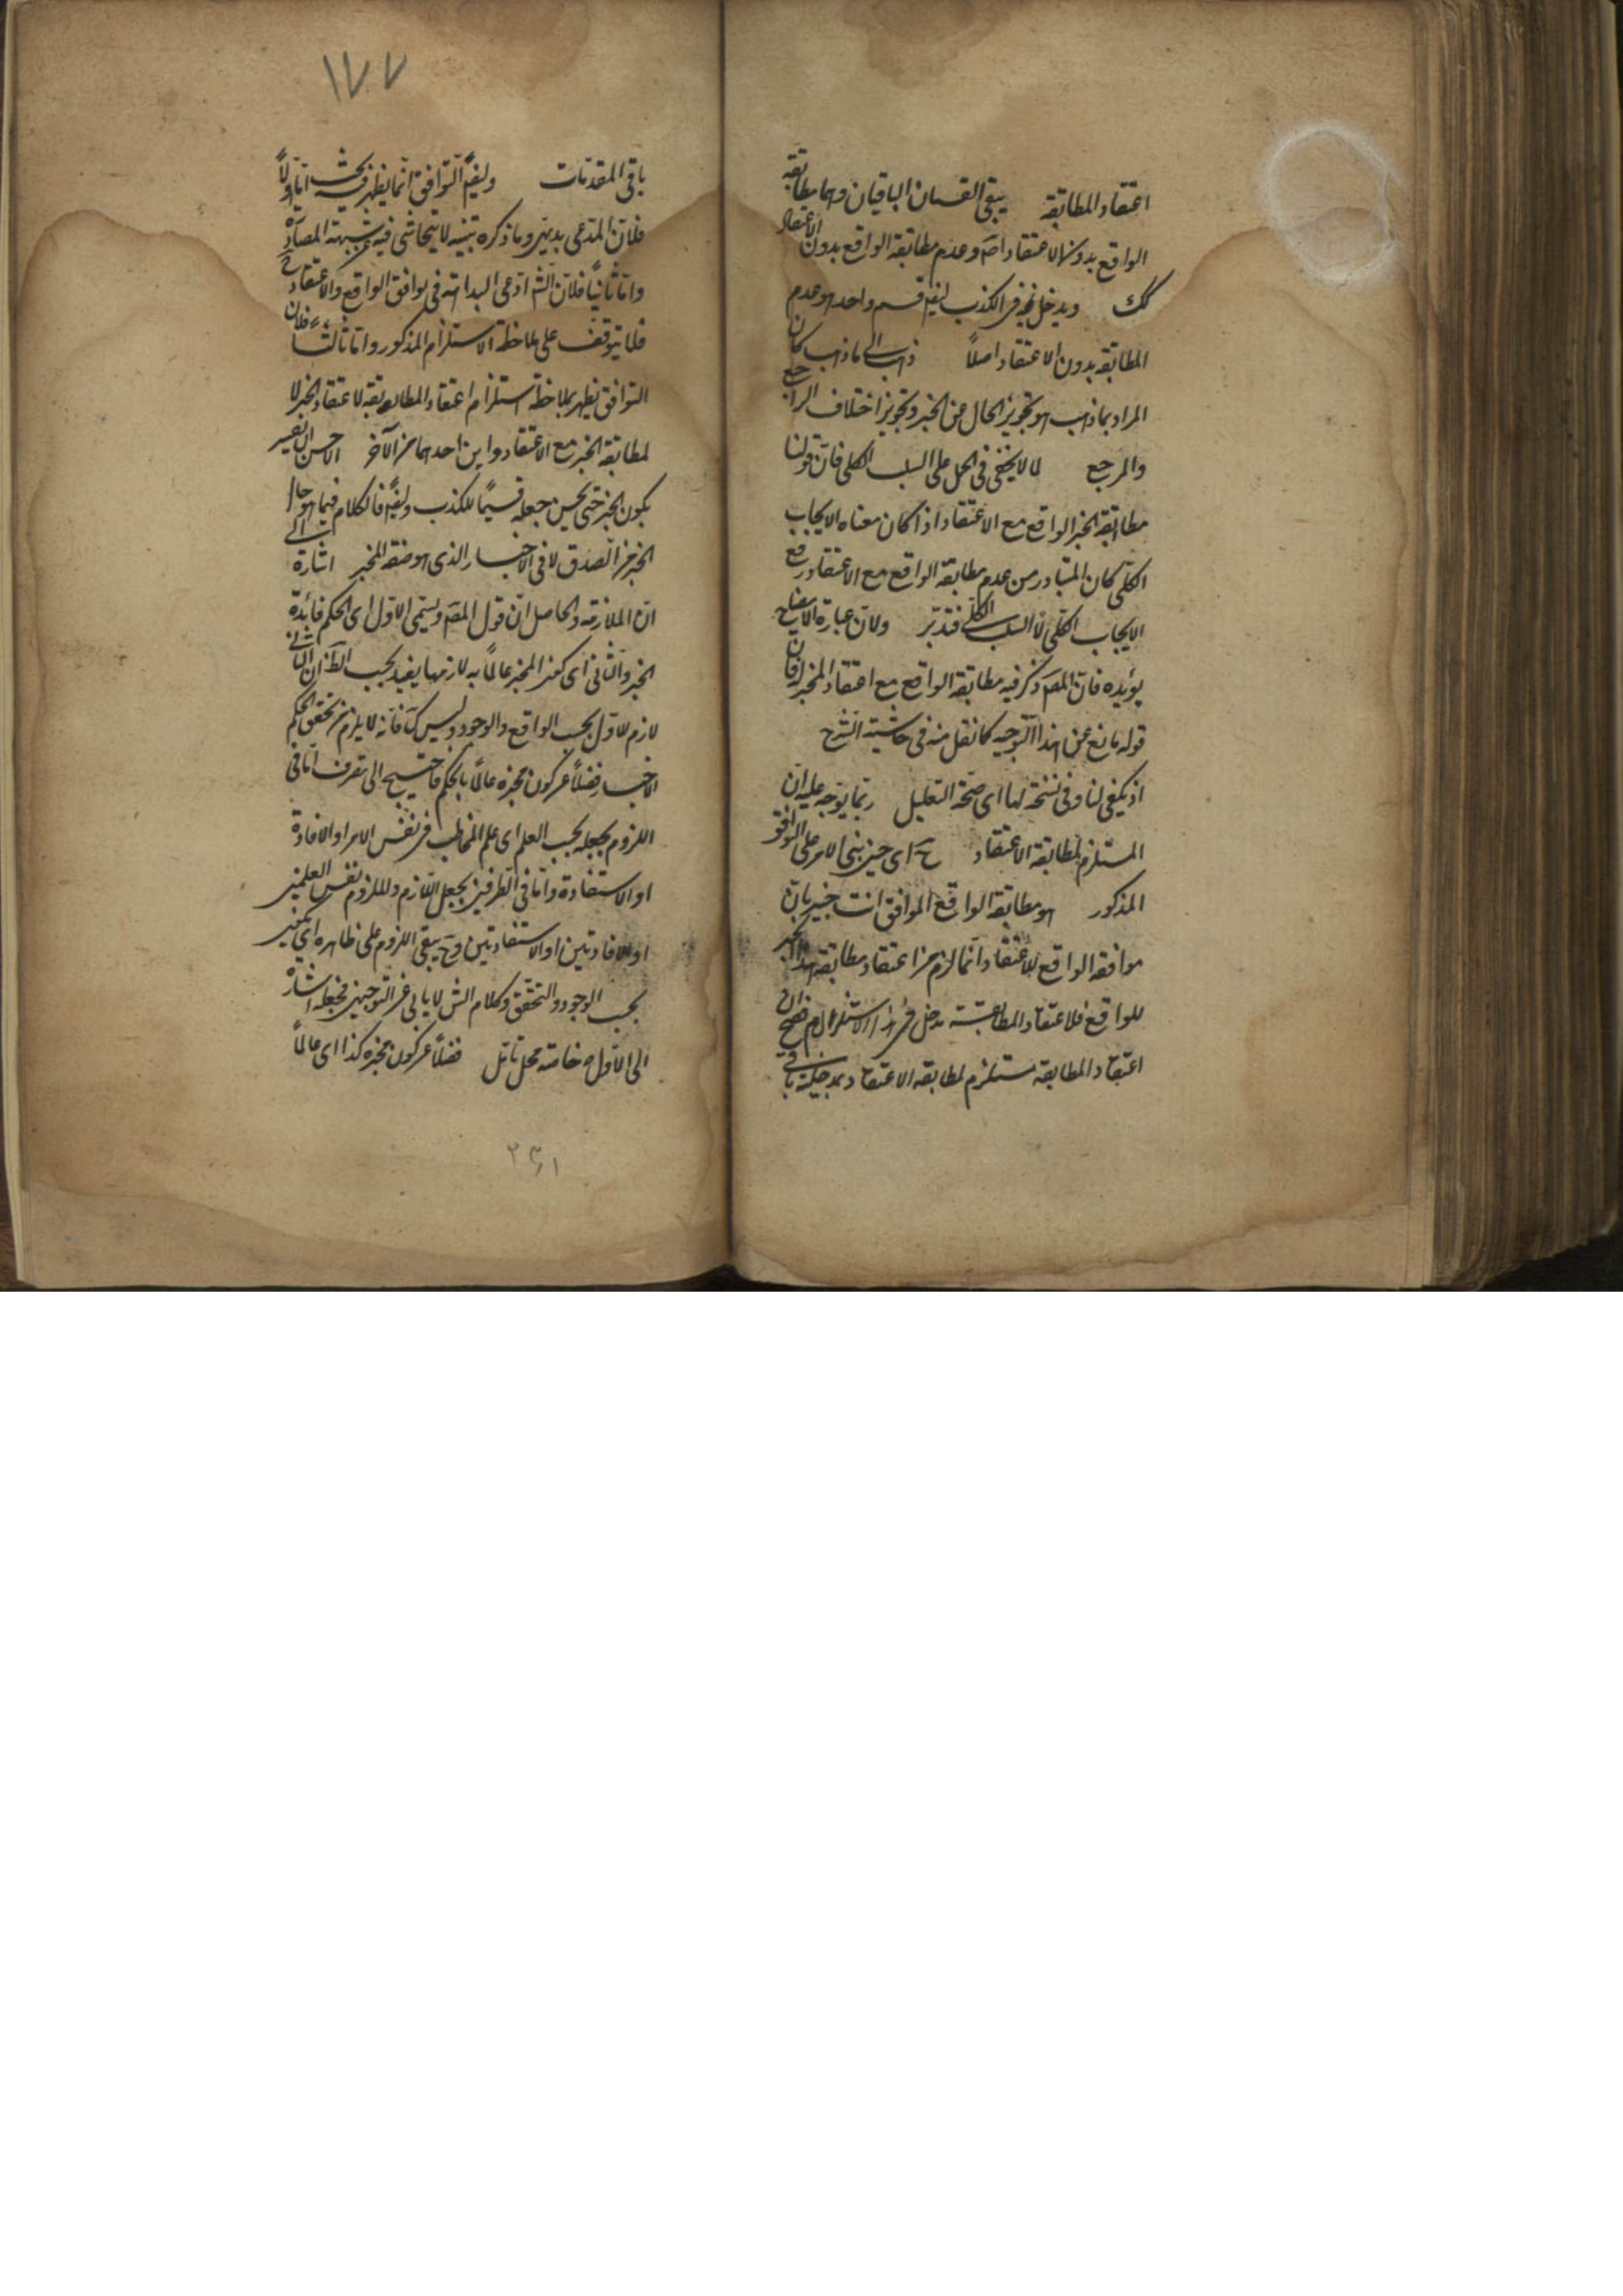 اعتقاد المطابقة يبقى القسمان الباقيان وهما مطابقة
الواقع بدون الاعتقاد اصم وعدم مطابقة الواقع بدون الاعتقاد
كك ويدخل في الكذب ايضا قسم واحد هو عدم
المطابقة بدون الاعتقاد اصلاً ذهب الى ما ذهب كان
المراد بما ذهب هو تجويز الحال عن الخبر وتجويز اختلاف الراجع
والمرجع لما لا يخفى في الحمل على السلب الكلى فان قولنا
مطابقة الخبر الواقع مع الاعتقاد اذا كان معناه الايجاب
الكلّى كان المتبادر من عدم مطابقة الواقع مع الاعتقاد رفع
الايجاب الكلّى لا السلب الكلّى فتدبّر ولان عبارة الايضاح
يؤيده فان المص ذكر فيه مطابقة الواقع مع اعتقاد المخبر فان
قوله مانع عن هذا التوجيه كما نقل منه في حاشية الشرح
اذ يكفى لنا وفى نسخة لها اى صحّة التعليل ربّما يوجّه عليه ان
المستلزم لمطابقة الاعتقاد ح اى حين بنى الامر على التوافق
المذكور هو مطابقة الواقع الموافق انت خبير بان
موافقة الواقع للاعتقاد انّما لزم من اعتقاد مطابقة هذا الخبر
للواقع فلاعتقاد المطابقة مدخل في هذا الاستلزام فصح ان
اعتقاد المطابقة مستلزم لمطابقة الاعتقاد بمدخلية باقى
١٧٧
باقى المقدّمات وايضاً التوافق انّما يظهر فيه بحث امّا اولاً
فلان المدّعى بديهى وما ذكره تنبيه لا يتحاشى فيه شبهة المصادرة
وامّا ثانياً فلان الش ادّعى البداهة فى توافق الواقع والاعتقاد
فلا يتوقف على ملاحظة الاستلزام المذكور وامّا ثالثاً فلان
التوافق يظهر بملاحظة استلزام اعتقاد المطابقة لاعتقاد الخبر لا
لمطابقة الخبر مع الاعتقاد واين احدهما من الآخر الاحسن التفسير
بكون الخبر حتى يحسن جعله قسيماً للكذب وايضاً فالكلام فيما هو حال
الخبر من الصدق لا فى الاخبار الذى هو صفة المخبر اشارة الى
ان الملازمة والحاصل ان قول المص ويسمى الاول اى الحكم فائدة
الخبر والثانى اى كون المخبر عالماً به لازمها يفيد بحسب الظ ان الثانى
لازم للاوّل بحسب الواقع والوجود وليس كك فانه لا يلزم من تحقق الحكم
الاخبار فضلاً عن كون مخبره عالماً بالحكم فاحتيج الى تصرف امّا فى
اللزوم بجعله بحسب العلم اى علم المخاطب فى نفس الامر او الافادة
او الاستفادة وامّا فى الطرفين بجعل اللازم والملزوم نفس العلمين
او الافادتين او الاستفادتين وح يبقى اللزوم على ظاهره اى يكون
بحسب الوجود والتحقق وكلام الش لا يابى عن التوجيهين فجعله اشارة
الى الاوّل خاصة محل تامّل فضلاً عن كون مخبره كذا اى عالماً